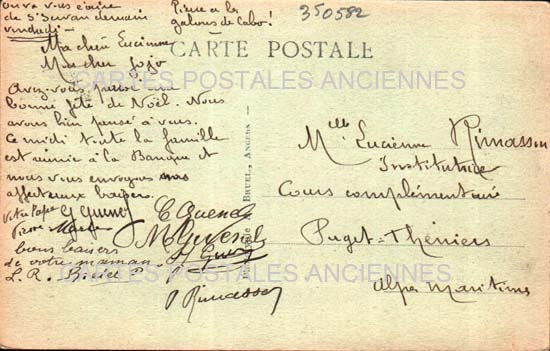 on va vous écrire
de St Servan demain
vendredi
Pierre a les
galons de Cabo!
350582
CARTE POSTALE
CARTES POSTALES ANCIENNES
Ma chère Lucienne
Mon cher Jojo
Avez-vous passé une
bonne fête de Noël. Nous
avons bien pensé à vous.
Ce midi toute la famille
est réunie à la Banque et
nous vous envoyons nos
affectueux baisers.
Votre Papa
Pierre
bons baisers
de votre maman
L. R.
P. Rimasson
BRUEL, ANGERS
Mlle Lucienne Rimasson
Institutrice
Cours complémentaire
Puget-Théniers
Alpes Maritimes
CARTES POSTALES ANCIENNES